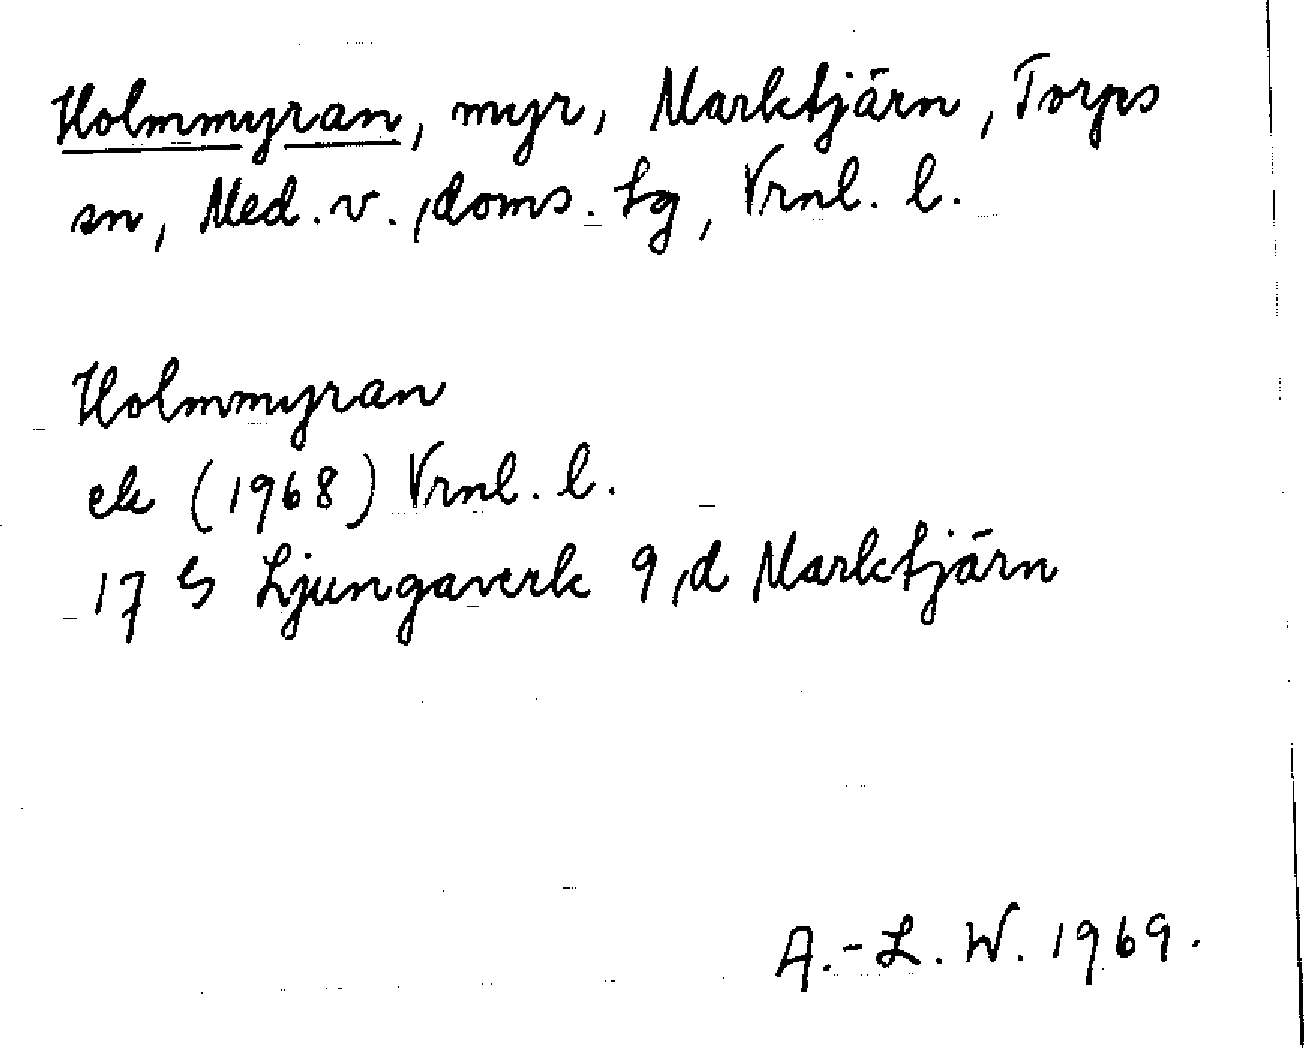 Holmmyran, myr, Marktjärn, Torps
sn, Med. v., doms. tg, Vrnl. l.
Holmmyran
ek (1968) Vrnl. l.
17 G Ljungaverk 9, d Marktjärn
A.-L. W. 1969.